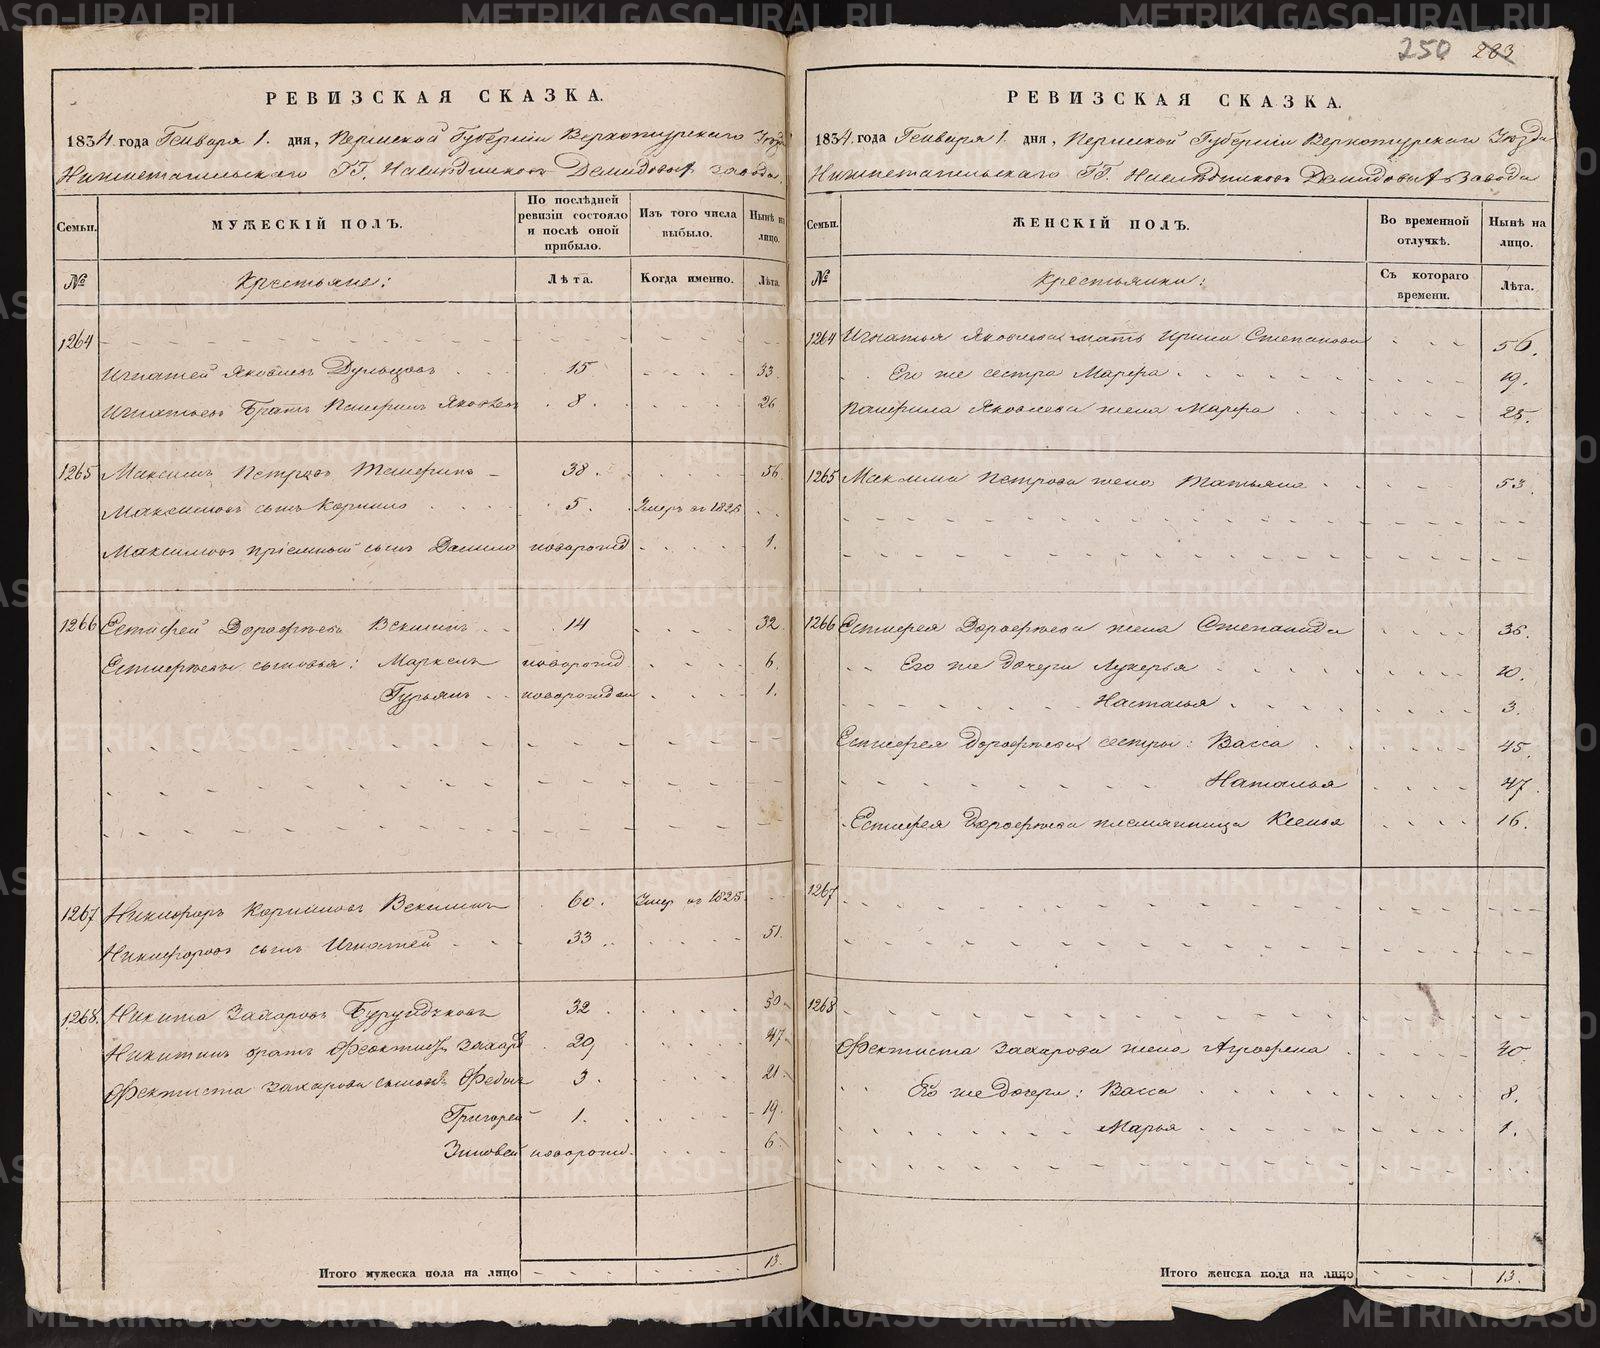 250 283
РЕВИЗСКАЯ СКАЗКА.
1834 года Генваря 1. дня, Пермской Губерніи Верхотурскаго Уезда
Нижнетагильскаго ГГ. Наследниковъ Демидовыхъ завода.
Семьи. МУЖЕСКІЙ ПОЛЪ. По послѣдней ревизіи состояло и послѣ оной прибыло. Изъ того числа выбыло. Нынѣ на лицо.
№ Крестьяне: Лѣта. Когда именно. Лѣта.
1264
Игнатей Яковлевъ 15 33
Игнатьевъ братъ Панфилъ Яковлевъ 8. 26
1265 Максимъ Петровъ 38. 56
Максимовъ сынъ Корнило 5. Умеръ въ 1826
Максимовъ пріемный сынъ Данило новорожд 1.
1266 Естифей Дорофѣевъ Векшинъ 14 32.
Естифѣевы сыновья: Маркелъ новорожд 6.
Гурьянъ новорожден 1.
1267 Никифоръ Корниловъ Векшинъ 60. Умер въ 1825.
Никифоровъ сынъ Игнатей 33 51.
1268. Никита Захаровъ Бурундуковъ 32 50
Никитинъ братъ Феоктистъ Захаровъ 29 47
Фектиста Захарова сыновья Федоръ 3. 21
Григорей 1. 19.
Зиновей новорожд. 6.
Итого мужеска пола на лицо 13.
РЕВИЗСКАЯ СКАЗКА.
1834 года Генваря 1. дня, Пермской Губерніи Верхотурскаго Уезда
Нижнетагильскаго ГГ. Наследниковъ Демидовыхъ Завода
Семьи. ЖЕНСКІЙ ПОЛЪ. Во временной отлучкѣ. Нынѣ на лицо.
№ Крестьянки: Съ котораго времени. Лѣта.
1264 Игнатья Яковлева мать Ирина Степанова 56.
Его же сестра Марфа 19.
Панфила Яковлева жена Марфа 25.
1265 Максима Петрова жена Татьяна 53.
1266 Естифея Дорофѣева жена Степанида 36.
Его же дочери Лукерья 10.
Настасья 3.
Естифея Дорофѣева сестры: Васса 45.
Наталья 47.
Естифея Дорофѣева племянница Ксенья 16.
1267
1268
Фектиста Захарова жена Аграфена 40
Его же дочери: Васса 8.
Марья 1.
Итого женска пола на лицо 13.
METRIKI.GASO-URAL.RU